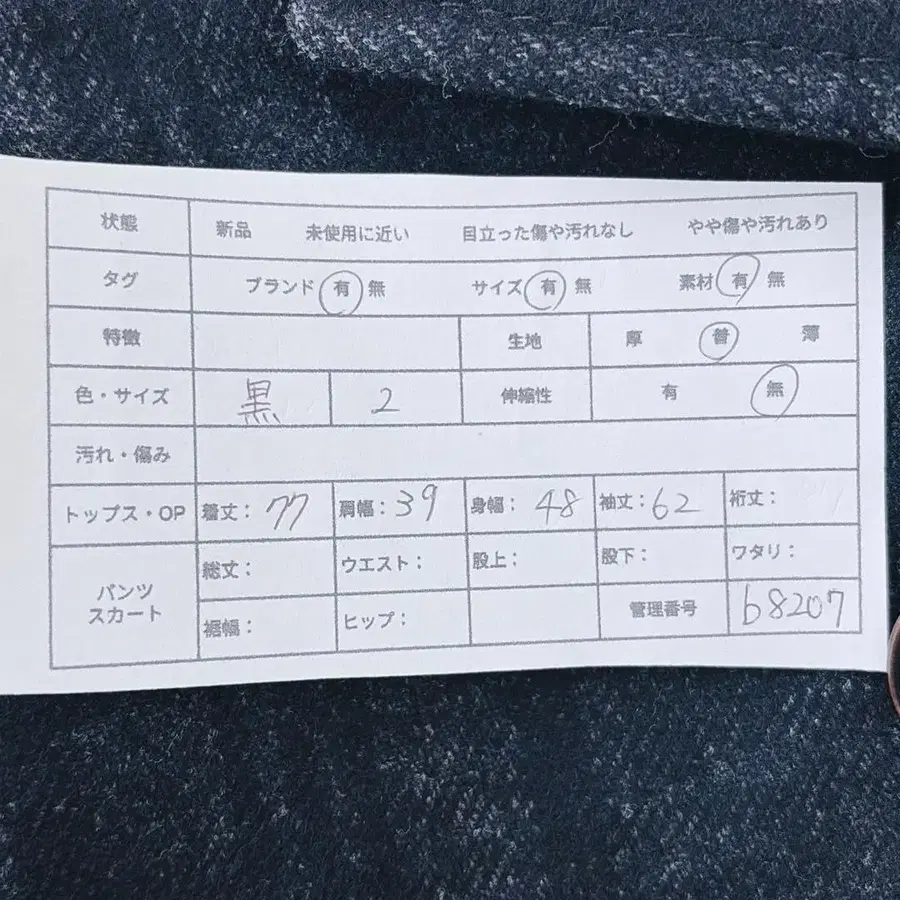 状態 新品 未使用に近い 目立った傷や汚れなし やや傷や汚れあり
タグ ブランド 有 無 サイズ 有 無 素材 有 無
特徴 生地 厚 普 薄
色・サイズ 黒 2 伸縮性 有 無
汚れ・傷み
トップス・OP 着丈: 77 肩幅: 39 身幅: 48 袖丈: 62 裄丈:
パンツ
スカート
総丈: ウエスト: 股上: 股下: ワタリ:
裾幅: ヒップ: 管理番号 b8207